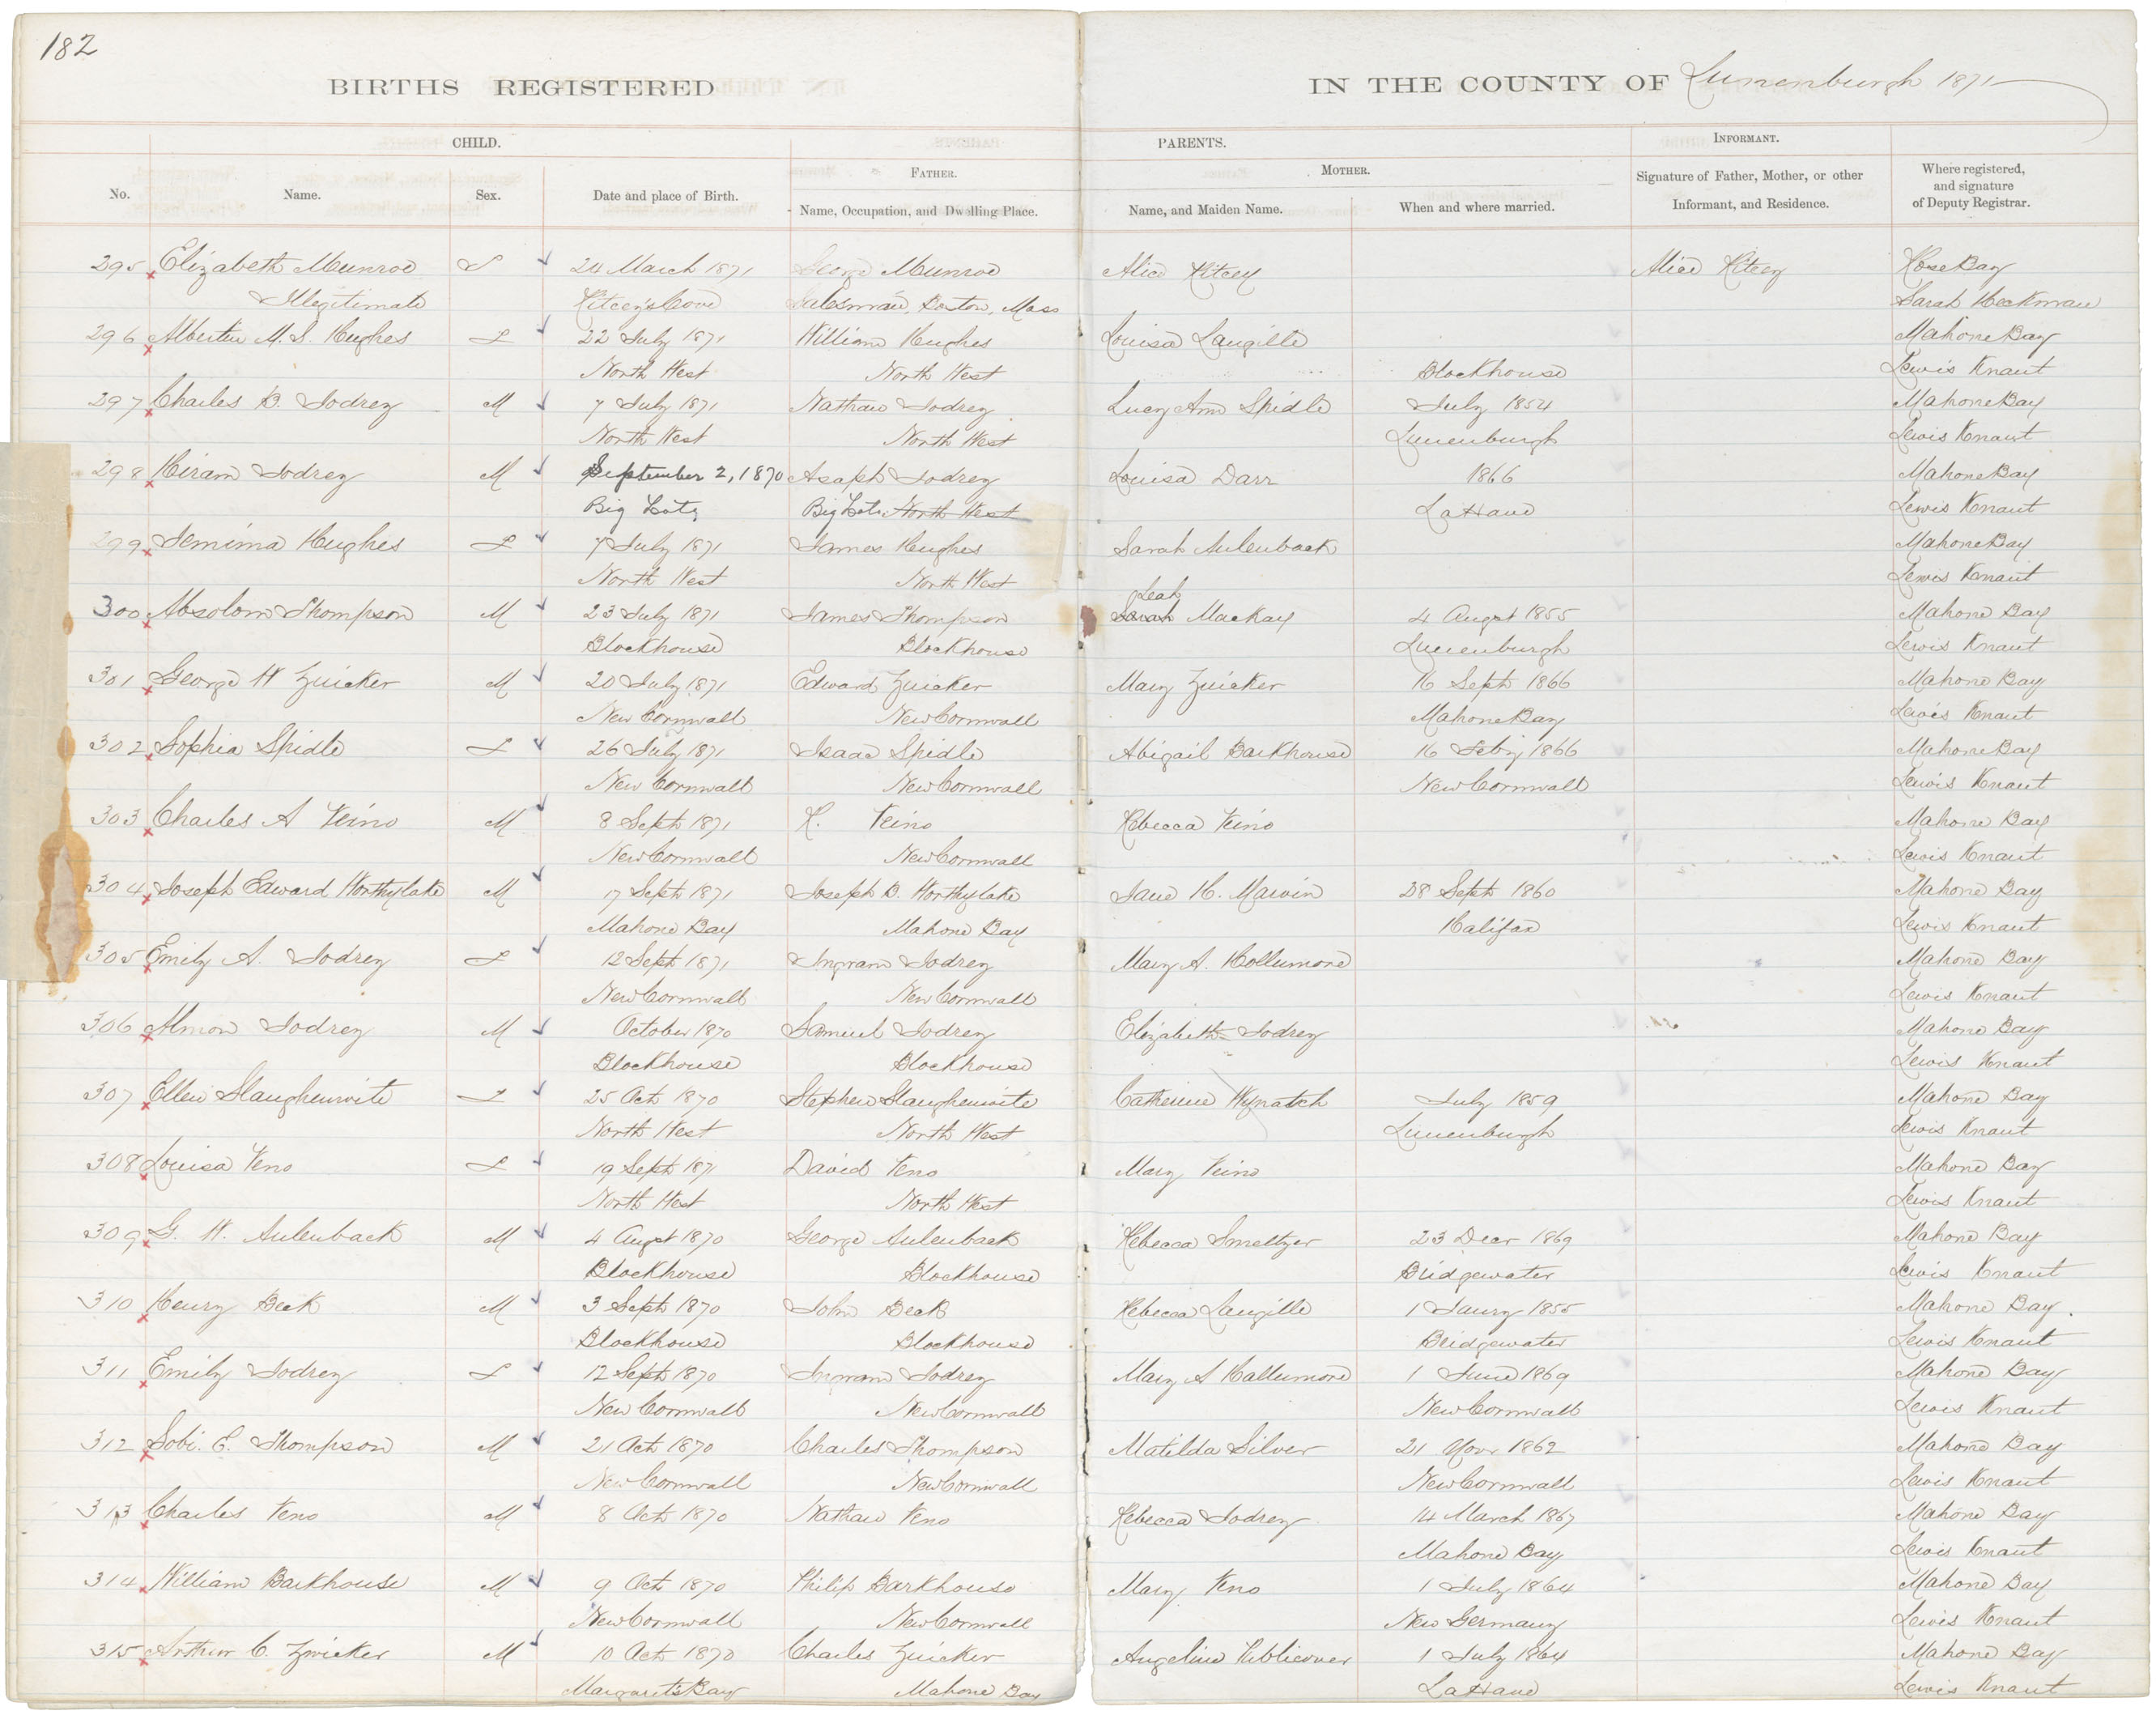 182
BIRTHS REGISTERED IN THE COUNTY OF Lunenburgh 1871
CHILD. PARENTS. INFORMANT.
FATHER. MOTHER.
No. Name. Sex. Date and place of Birth. Name, Occupation, and Dwelling Place. Name, and Maiden Name. When and where married. Signature of Father, Mother, or other Informant, and Residence. Where registered, and signature of Deputy Registrar.
295 Elizabeth Munroe F 24 March 1871 George Munroe Alice Ritcey Alice Ritcey Rose Bay
Illegitimate Ritcey's Cove Salesman, Boston, Mass Sarah Heckman
296 Albertha M. S. Hughes F 22 July 1871 William Hughes Louisa Langille Mahone Bay
North West North West Blockhouse Lewis Knaut
297 Charles B. Jodrey M 7 July 1871 Nathan Jodrey Lucy Ann Spidle July 1854 Mahone Bay
North West North West Lunenburgh Lewis Knaut
298 Hiram Jodrey M September 2, 1870 Asaph Jodrey Louisa Darr 1866 Mahone Bay
Big Lots Big Lots North West LaHave Lewis Knaut
299 Jemima Hughes F 7 July 1871 James Hughes Sarah Aulenback Mahone Bay
North West North West Lewis Knaut
Leah
300 Absolom Thompson M 23 July 1871 James Thompson Sarah MacKay 4 Augst 1855 Mahone Bay
Blockhouse Blockhouse Lunenburgh Lewis Knaut
301 George W Zuicker M 20 July 1871 Edward Zuicker Mary Zuicker 16 Sept 1866 Mahone Bay
New Cornwall New Cornwall Mahone Bay Lewis Knaut
302 Sophia Spidle F 26 July 1871 Isaac Spidle Abigail Barkhouse 16 Feby 1866 Mahone Bay
New Cornwall New Cornwall New Cornwall Lewis Knaut
303 Charles A Veino M 8 Sept 1871 H. Veino Rebecca Veino Mahone Bay
New Cornwall New Cornwall Lewis Knaut
304 Joseph Edward Worthylake M 17 Sept 1871 Joseph B. Worthylake Jane H. Marvin 28 Sept 1860 Mahone Bay
Mahone Bay Mahone Bay Halifax Lewis Knaut
305 Emily A. Jodrey F 12 Sept 1871 Ingram Jodrey Mary A. Hollumore Mahone Bay
New Cornwall New Cornwall Lewis Knaut
306 Almon Jodrey M October 1870 Samuel Jodrey Elizabeth Jodrey Mahone Bay
Blockhouse Blockhouse Lewis Knaut
307 Ellen Slaughenwite F 25 Oct 1870 Stephen Slaughenwite Catherine Wynatch July 1859 Mahone Bay
North West North West Lunenburgh Lewis Knaut
308 Louisa Veno F 19 Sept 1871 David Veno Mary Veino Mahone Bay
North West North West Lewis Knaut
309 G. W. Aulenback M 4 Augst 1870 George Aulenback Rebecca Smeltzer 23 Decr 1869 Mahone Bay
Blockhouse Blockhouse Bridgewater Lewis Knaut
310 Henry Beck M 3 Sept 1870 John Beck Rebecca Langille 1 Jany 1855 Mahone Bay.
Blockhouse Blockhouse Bridgewater Lewis Knaut
311 Emily Jodrey F 12 Sept 1870 Inman Jodrey Mary A Hallumore 1 June 1869 Mahone Bay
New Cornwall New Cornwall New Cornwall Lewis Knaut
312 Sobi. E. Thompson M 21 Oct 1870 Charles Thompson Matilda Silver 21 Novr 1862 Mahone Bay
New Cornwall New Cornwall New Cornwall Lewis Knaut
313 Charles Veno M 8 Oct 1870 Nathan Veno Rebecca Jodrey 14 March 1867 Mahone Bay
Mahone Bay Lewis Knaut
314 William Barkhouse M 9 Oct 1870 Philip Barkhouse Mary Veno 1 July 1864 Mahone Bay
New Cornwall New Cornwall New Germany Lewis Knaut
315 Arthur C. Zwicker M 10 Oct 1870 Charles Zuicker Angeline Hiblieover 1 July 1864 Mahone Bay
Margarets Bay Mahone Bay LaHave Lewis Knaut